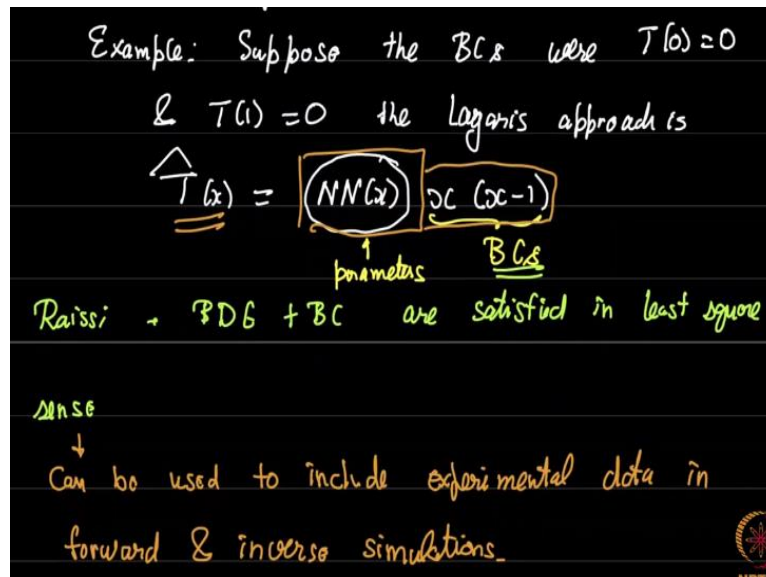 Example: Suppose the BCs were T(0) = 0
& T(1) = 0 the Lagaris approach is
T̂(x) = NN(x) x (x-1)
parameters BCs
Raissi - PDE + BC are satisfied in least square
sense
Can be used to include experimental data in
forward & inverse simulations.